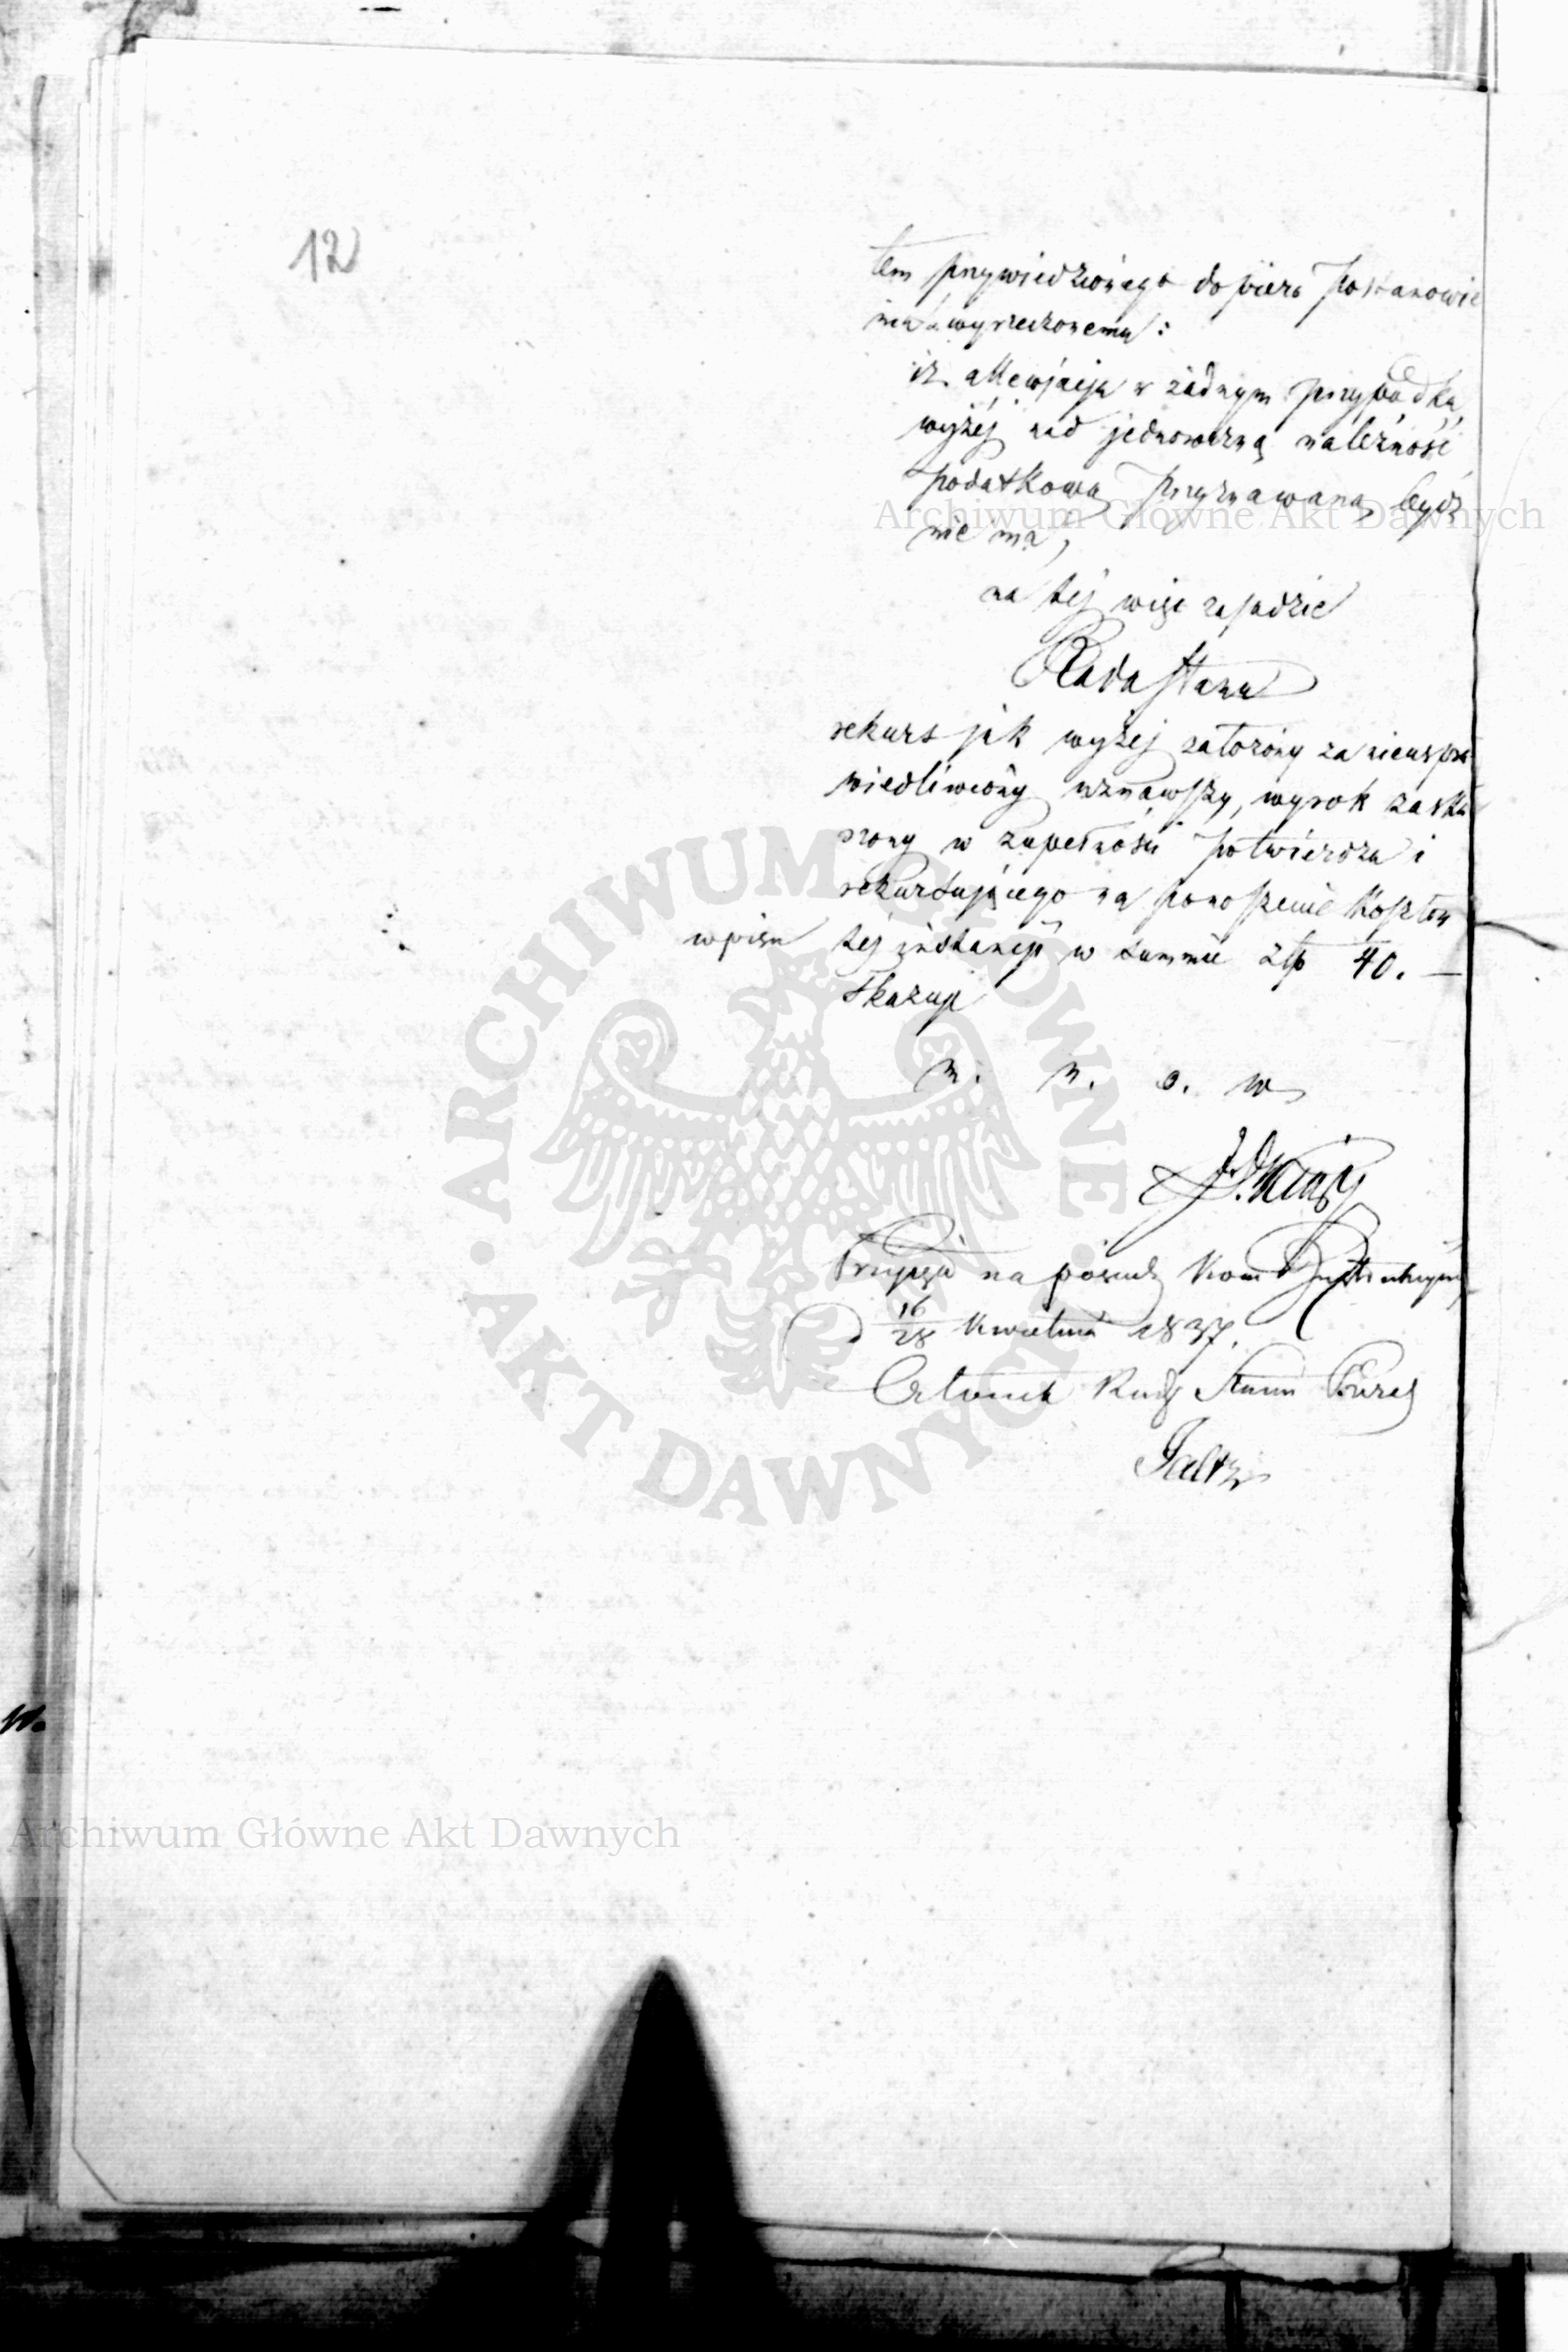 12
tem przywiedzionego dopiero Postanowie
nia wyrzeczonemu:
iż allewjacja w żadnym przypadku
wyżéj nad jednoroczną należność
podatkową przyznawaną bydź
nie ma,
na téj więc zasadzie
Rada Stanu
rekurs jak wyżej założony za nieuspra
wiedliwiony uznawszy, wyrok zaska
rzony w zupełności potwierdza i
rekursującego na ponoszenie kosztów
wpisu téj instancji w summie Złp 40. —
skazuje
m. n. o. w
Przyjęta na posiedz Kom
d 16/28 Kwietnia 1837.
Członek Rady Stanu Prezes
Archiwum Główne Akt Dawnych
Archiwum Główne Akt Dawnych
ARCHIWUM GŁÓWNE · AKT DAWNYCH ·